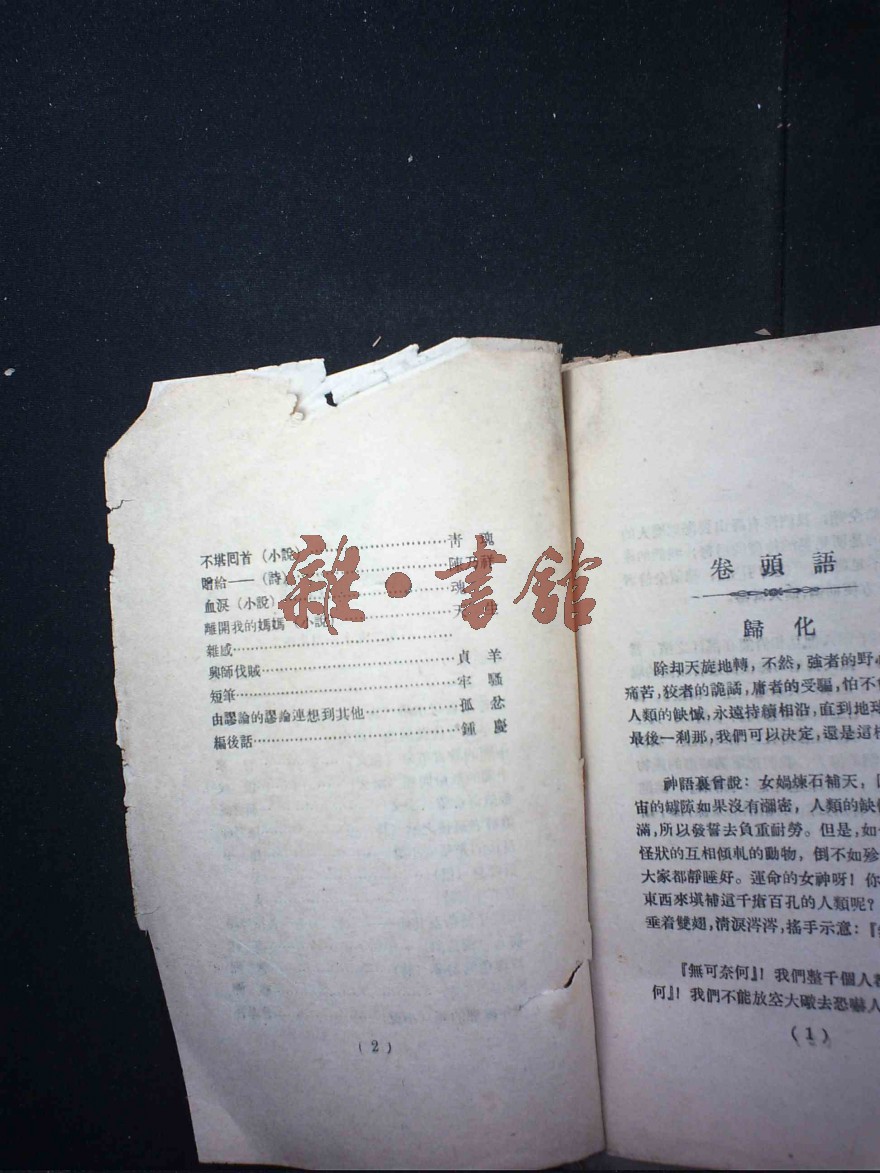 不堪回首(小說)……………………靑 魂
贈給——(詩)……………………陳乃祥
血淚(小說)……………………魂
離開我的媽媽(小說)……………………天
雜感……………………
興師伐賊……………………貞 羊
短筆……………………牢 騷
由謬論的謬論連想到其他……………………孤 忿
編後話……………………鍾 慶
(2)
雜·書館
卷頭語
歸化
除却天旋地轉,不然,強者的野心
痛苦,狡者的詭譎,庸者的受騙,怕不
人類的缺憾,永遠持續相沿,直到地球
最後一刹那,我們可以決定,還是這樣
神語裏曾說:女媧煉石補天,
宙的罅隙如果沒有瀰密,人類的缺
滿,所以發誓去負重耐勞。但是,如
怪狀的互相傾軋的動物,倒不如殄
大家都靜睡好。運命的女神呀!你
東西來塡補這千瘡百孔的人類呢?
垂着雙翅,淸淚涔涔,搖手示意:『
『無可奈何』!我們整千個人
何』!我們不能放空大礮去恐嚇人
(1)